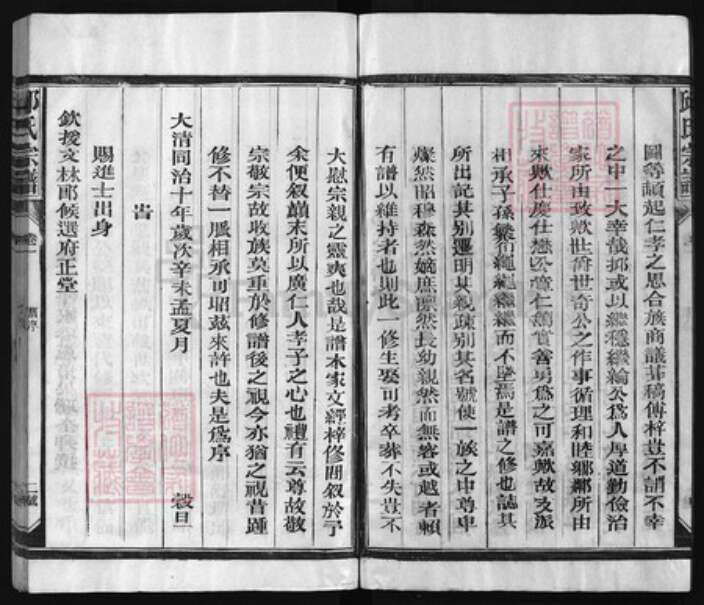 圖等頓起仁孝之思合族商議甚稿傳梓豈不謂不幸
之中一大幸哉抑或以繼穩繼綸公為人厚道勤儉治
家所由致歟世爵世奇公之作事循理和睦鄉鄰所由
來歟仕慶仕懋公童仁篤實善男為之可嘉歟故支派
相承子孫繁衍繩繩繼繼而不墜焉是譜之修也誌其
所出記其別邐明其親疏別其名號使一族之中尊卑
燦然昭穆森然嫡庶凛然長幼親然而無容或越者賴
有譜以維持者也則此一修生娶可考卒葬不失豈不
大慰宗親之靈爽也哉是譜本家文經梓修囬叙於予
余便叙巔末所以廣仁人孝子之心也禮有云尊故敬
宗敬宗故收族莫重於修譜後之視今亦猶之視昔踵
修不替一脈相承可昭茲來許也夫是為序
大清同治十年歲次辛未孟夏月 穀旦
旹
賜進士出身
欽授文林郎候選府正堂
邱氏宗譜
卷一
舊序